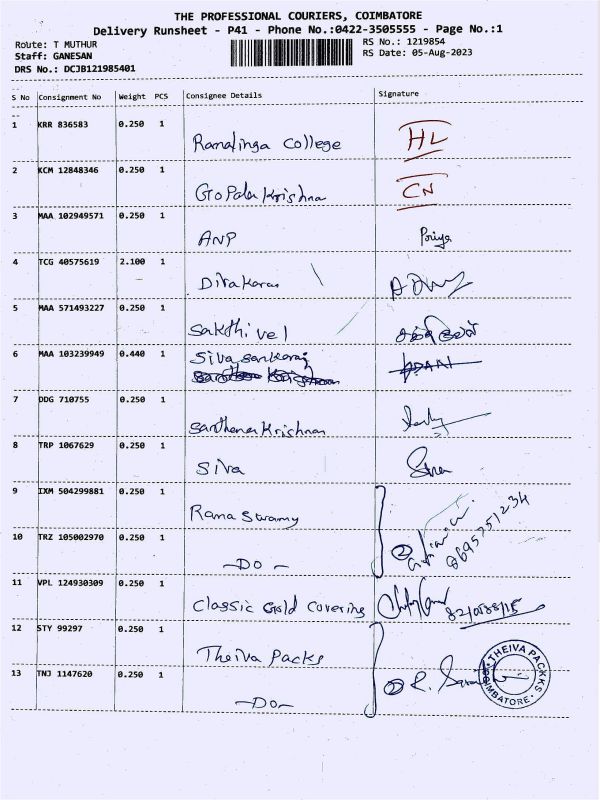 THE PROFESSIONAL COURIERS, COIMBATORE
Delivery Runsheet - P41 - Phone No.:0422-3505555 - Page No.:1
Route: T MUTHUR
RS No.: 1219854
Staff: GANESAN
RS Date: 05-Aug-2023
DRS No.: DCJB121985401
S No Consignment No Weight PCS Consignee Details Signature
1 KRR 836583 0.250 1
Ramalinga College HL
2 KCM 12848346 0.250 1
GoPala Krishna CN
3 MAA 102949571 0.250 1
ANP Priya
4 TCG 40575619 2.100 1
Divakaran
5 MAA 571493227 0.250 1
Sakthivel சக்திவேல்
6 MAA 103239949 0.440 1
Siva Sankaran
7 DDG 710755 0.250 1
Santhana Krishnan
8 TRP 1067629 0.250 1
Siva Siva
9 IXM 504299881 0.250 1
Rama Swamy
10 TRZ 105002970 0.250 1
-Do- 2 8695751234
11 VPL 124930309 0.250 1
Classic Gold Covering
12 STY 99297 0.250 1
Theiva Packs
13 TNJ 1147620 0.250 1
-Do- 2 R.
THEIVA PACKKS
COIMBATORE